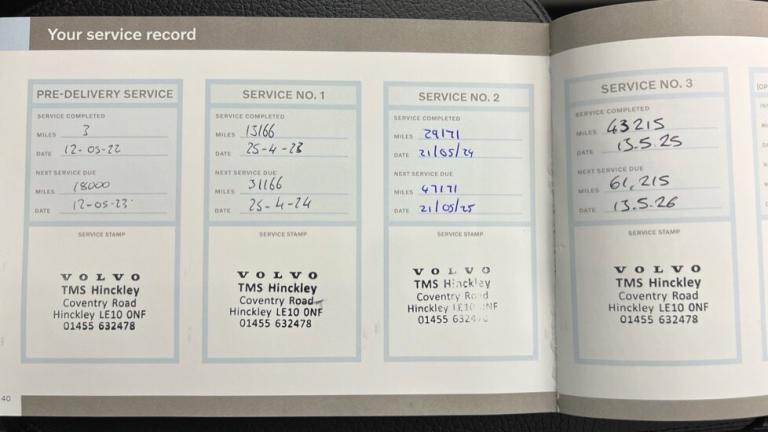 Your service record
PRE-DELIVERY SERVICE
SERVICE COMPLETED
MILES 3
DATE 12-05-22
NEXT SERVICE DUE
MILES 18000
DATE 12-05-23
SERVICE STAMP
VOLVO
TMS Hinckley
Coventry Road
Hinckley LE10 0NF
01455 632478
SERVICE NO. 1
SERVICE COMPLETED
MILES 13166
DATE 25-4-23
NEXT SERVICE DUE
MILES 31166
DATE 25-4-24
SERVICE STAMP
VOLVO
TMS Hinckley
Coventry Road
Hinckley LE10 0NF
01455 632478
SERVICE NO. 2
SERVICE COMPLETED
MILES 29171
DATE 21/05/24
NEXT SERVICE DUE
MILES 47171
DATE 21/05/25
SERVICE STAMP
VOLVO
TMS Hinckley
Coventry Road
Hinckley
01455
SERVICE NO. 3
SERVICE COMPLETED
MILES 43215
DATE 13.5.25
NEXT SERVICE DUE
MILES 61,215
DATE 13.5.26
SERVICE STAMP
VOLVO
TMS Hinckley
Coventry Road
Hinckley LE10 0NF
01455 632478
40